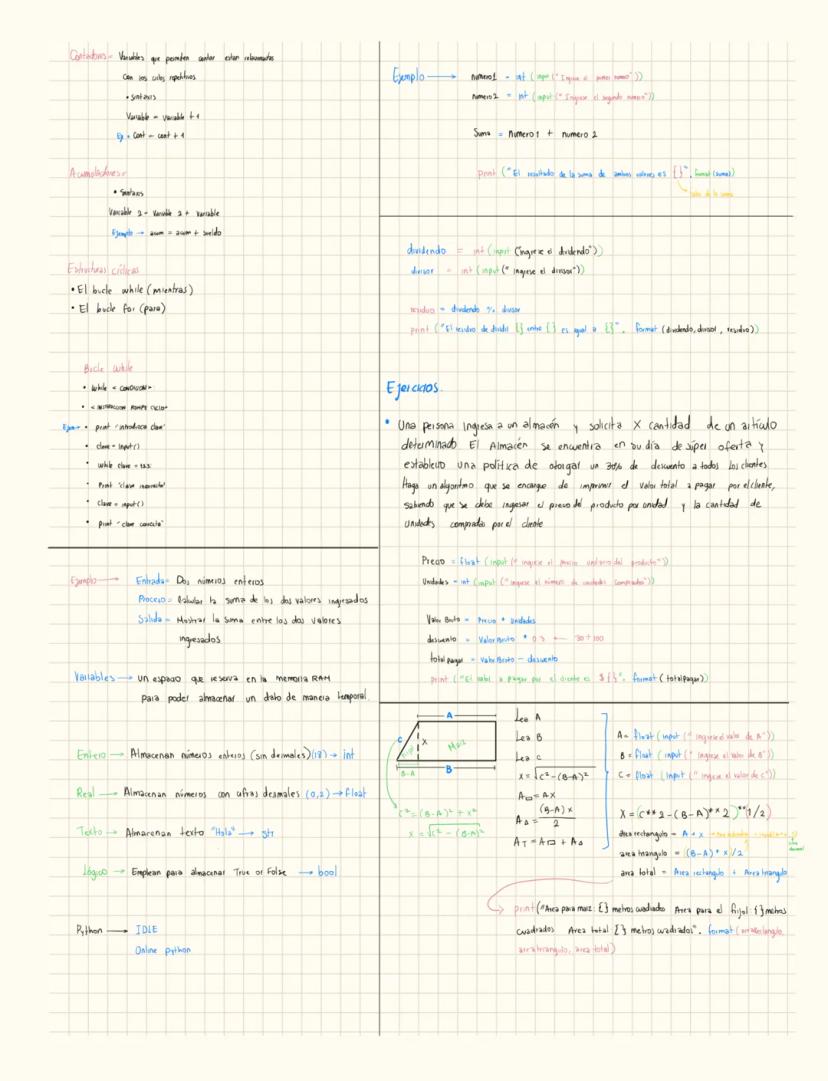 Contadores = Variables que permiten contar estan relacionadas
Con los ciclos repetitivos
• Sintaxis
Variable = Variable + 1
Ej = Cont = cont + 1
Acumuladores =
• Sintaxis
Variable 2 = Variable 2 + Variable
Ejemplo → acum = acum + sueldo
Estructuras cíclicas
• El bucle while (mientras)
• El bucle for (para)
Bucle While
• While < CONDICION>:
• < INSTRUCCION ROMPE CICLO>
• print "introduzca clave"
• clave = input()
• while clave
• Print "clave incorrecta"
• Clave = input()
• print "clave correcta"
Ejemplo → Entrada = Dos números enteros
Proceso = Calcular la suma de los dos valores ingresados
Salida = Mostrar la suma entre los dos valores
ingresados
Variables → un espacio que reserva en la memoria RAM
para poder almacenar un dato de manera temporal.
Entero → Almacenan números enteros (sin decimales) (18) → int
Real → Almacenan números con cifras decimales (0,2) → float
Texto → Almacenan texto "Hola" → str
Lógico → Emplean para almacenar True or False → bool
Python → IDLE
Online python
Ejemplo → numero1 = int (input ("Ingrese el primer numero"))
numero2 = int (input ("Ingrese el segundo numero"))
Suma = Numero1 + numero 2
print ("El resultado de la suma de ambos valores es {}". format (suma))
valor de la suma
dividendo = int (input ("ingrese el dividendo"))
divisor = int (input (" ingrese el divisor"))
residuo = dividendo % divisor
print ("El residuo de dividir {} entre {} es igual a {}". format (dividendo, divisor, residuo))
Ejercicios.
• Una persona ingresa a un almacén y solicita X cantidad de un artículo
determinado El Almacén se encuentra en su día de súper oferta y
estableció una política de otorgar un 30% de descuento a todos los clientes
Haga un algoritmo que se encargue de imprimir el valor total a pagar por el cliente,
sabiendo que se debe ingresar el precio del producto por unidad y la cantidad de
unidades compradas por el cliente
Precio = float (input (" ingrese el precio unitario del producto"))
Unidades = int (input ("ingrese el número de unidades compradas"))
Valor Bruto = Precio * unidades
descuento = Valor Bruto * 0.3 ← 30÷100
total pagar = Valor Bruto - descuento
print ("El valor a pagar por el cliente es $ {}". format (totalpagar))
A
C
X
Maiz
B-A
B
C² = (B-A)² + x²
X = √C² - (B-A)²
Lea A
Lea B
Lea C
X = √C² - (B-A)²
A▭ = AX
A△ = (B-A) x / 2
AT = A▭ + A△
A = float (input (" ingrese el valor de A"))
B = float (input (" ingrese el valor de B"))
C = float (input (" ingrese el valor de C"))
X = (C** 2 - (B-A)** 2)**(1/2)
area rectangulo = A * X
area triangulo = (B-A) * x/2
area total = Area rectangulo + Area triangulo
print("Area para maiz: {} metros cuadrados Area para el frijol: {} metros
cuadrados Area total: {} metros cuadrados". format (area rectangulo,
area triangulo, area total)